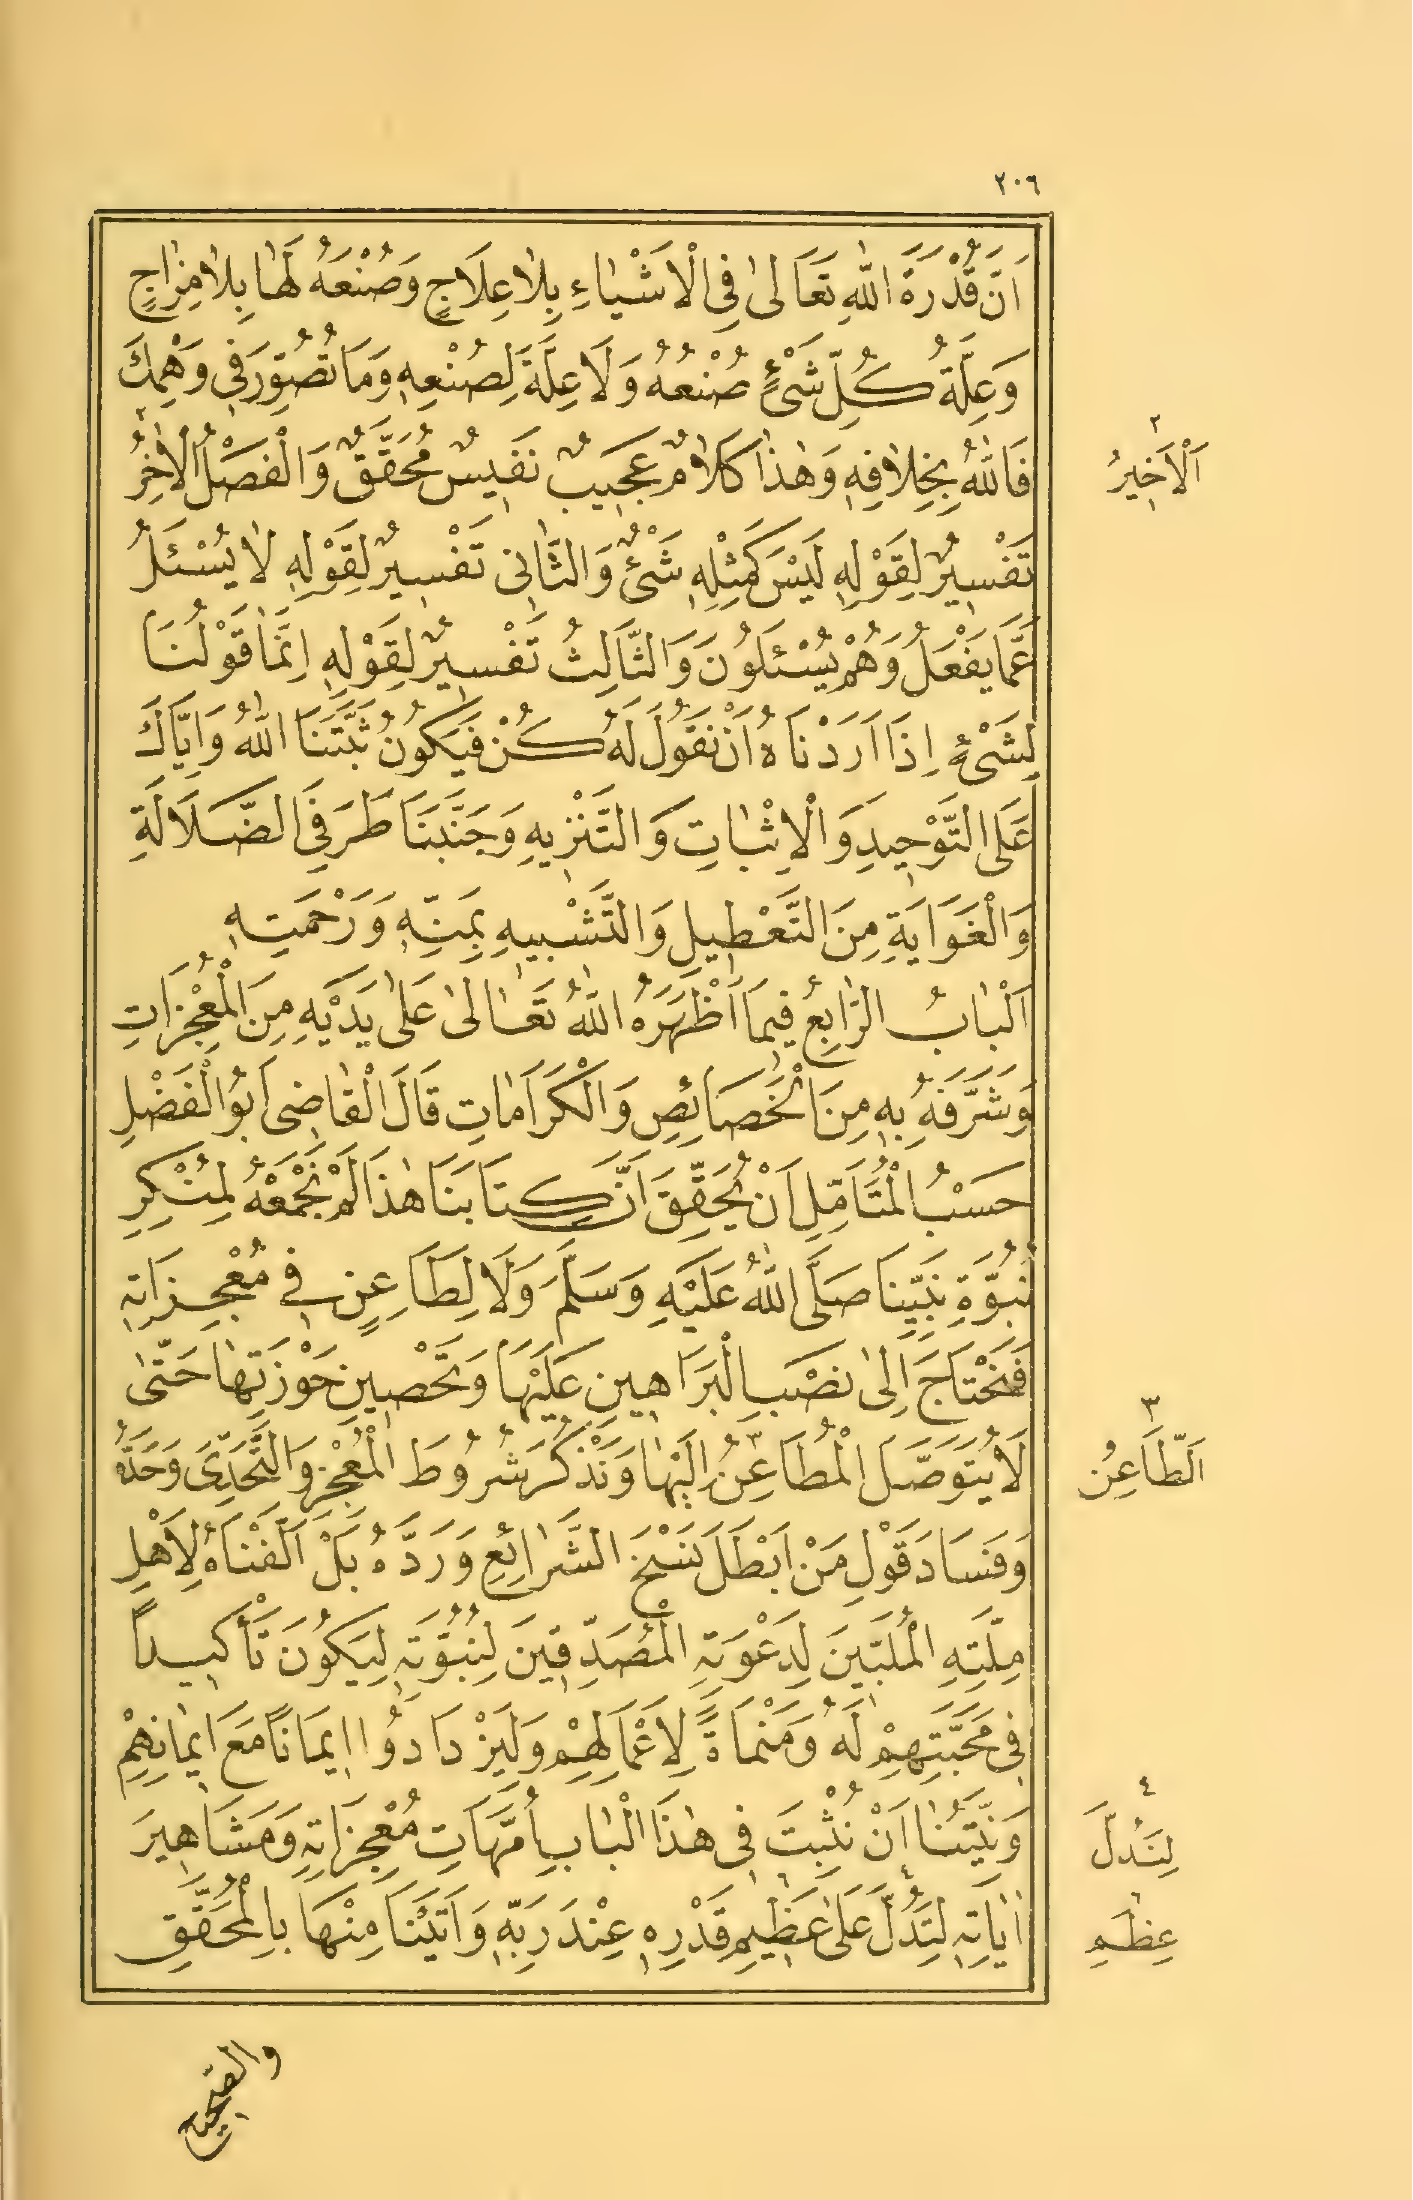 ٢٠٦
اَنَّ قُدْرَةَ اللّٰهِ تَعَالىٰ فِى الْاَشْيٰاءِ بِلاٰ عِلَاجٍ وَصُنْعَهُ لَهٰا بِلاٰ مِزٰاجٍ
وَعِلَّةُ كُلِّ شَىْءٍ صُنْعُهُ وَلَا عِلَّةَ لِصُنْعِهٖ وَمَا تُصُوِّرَ فِى وَهْمِكَ
فَاللّٰهُ بِخِلاٰفِهٖ وَهٰذٰا كَلاٰمٌ عَجٖيبٌ نَفٖيسٌ مُحَقَّقٌ وَالْفَصْلُ الْاٰخِرُ ٢
تَفْسٖيرٌ لِقَوْلِهٖ لَيْسَ كَمِثْلِهٖ شَىْءٌ وَالثَّانٖى تَفْسٖيرٌ لِقَوْلِهٖ لاٰ يُسْئَلُ
عَمَّا يَفْعَلُ وَهُمْ يُسْئَلُونَ وَالثَّالِثُ تَفْسٖيرٌ لِقَوْلِهٖ اِنَّمٰا قَوْلُنَا
لِشَىْءٍ اِذَا اَرَدْنَاهُ اَنْ نَقُولَ لَهُ كُنْ فَيَكُونُ ثَبَّتَنَا اللّٰهُ وَاِيَّاكَ
عَلَى التَّوْحٖيدِ وَالْاِثْبٰاتِ وَالتَّنْزٖيهِ وَجَنَّبَنَا طَرَفَىِ الضَّلَالَةِ
وَالْغَوَايَةِ مِنَ التَّعْطٖيلِ وَالتَّشْبٖيهِ بِمَنِّهٖ وَرَحْمَتِهٖ
اَلْبٰابُ الرَّابِعُ فٖيمَا اَظْهَرَهُ اللّٰهُ تَعٰالىٰ عَلىٰ يَدَيْهِ مِنَ الْمُعْجِزٰاتِ
وَشَرَّفَهُ بِهٖ مِنَ الْخَصَائِصِ وَالْكَرَامٰاتِ قَالَ الْقٰاضِى اَبُو الْفَضْلِ
حَسْبُ الْمُتَاَمِّلِ اَنْ يُحَقِّقَ اَنَّ كِتَابَنَا هٰذَا لَمْ نَجْمَعْهُ لِمُنْكِرِ
نُبُوَّةِ نَبِيِّنَا صَلَّى اللّٰهُ عَلَيْهِ وَسَلَّمَ وَلَا لِطَاعِنٍ فٖى مُعْجِزَاتِهٖ
فَنَحْتَاجَ اِلىٰ نَصْبِ الْبَرَاهٖينِ عَلَيْهَا وَتَحْصٖينِ حَوْزَتِهٰا حَتّٰى
لَا يَتَوَصَّلَ الْمُطَاعِنُ ٣ اِلَيْهٰا وَنَذْكُرَ شُرُوطَ الْمُعْجِزِ وَالتَّحَدِّىَ وَحَدَّهُ
وَفَسَادَ قَوْلِ مَنْ اَبْطَلَ نَسْخَ الشَّرٰائِعِ وَرَدَّهُ بَلْ اَلَّفْنَاهُ لِاَهْلِ
مِلَّتِهِ الْمُلَبّٖينَ لِدَعْوَتِهِ الْمُصَدِّقٖينَ لِنُبُوَّتِهٖ لِيَكُونَ تَأْكٖيدًا
فٖى مَحَبَّتِهِمْ لَهُ وَمَنْمَاةً لِاَعْمَالِهِمْ وَلِيَزْدَادُوا اٖيمَانًا مَعَ اٖيمَانِهِمْ
وَنِيَّتُنٰا اَنْ نُثْبِتَ فٖى هٰذَا الْبٰابِ اُمَّهَاتِ مُعْجِزَاتِهٖ وَمَشَاهٖيرَ
اٰيَاتِهٖ لِتَدُلَّ ٤ عَلىٰ عَظٖيمِ ٦ قَدْرِهٖ عِنْدَ رَبِّهٖ وَاَتَيْنَا مِنْهَا بِالْمُحَقَّقِ
٢
اَلْاَخٖيرُ
٣
اَلطَّاعِنُ
٤
لِنَدُلَّ
٦
عِظَمِ
والصحيح